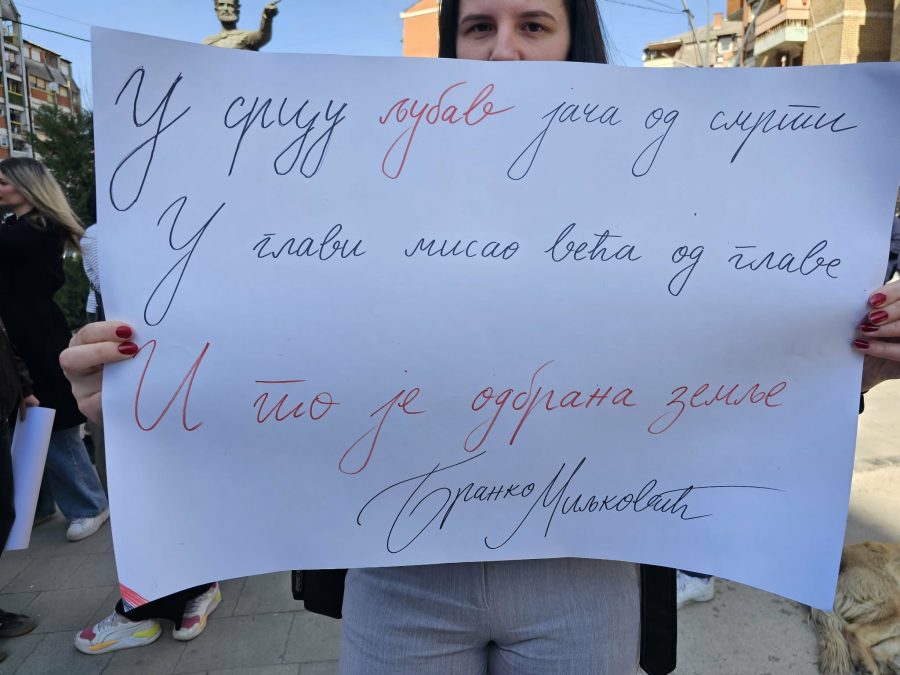 У срцу љубав јача од смрти
У глави мисао већа од главе
И то је одбрана земље
Бранко Миљковић